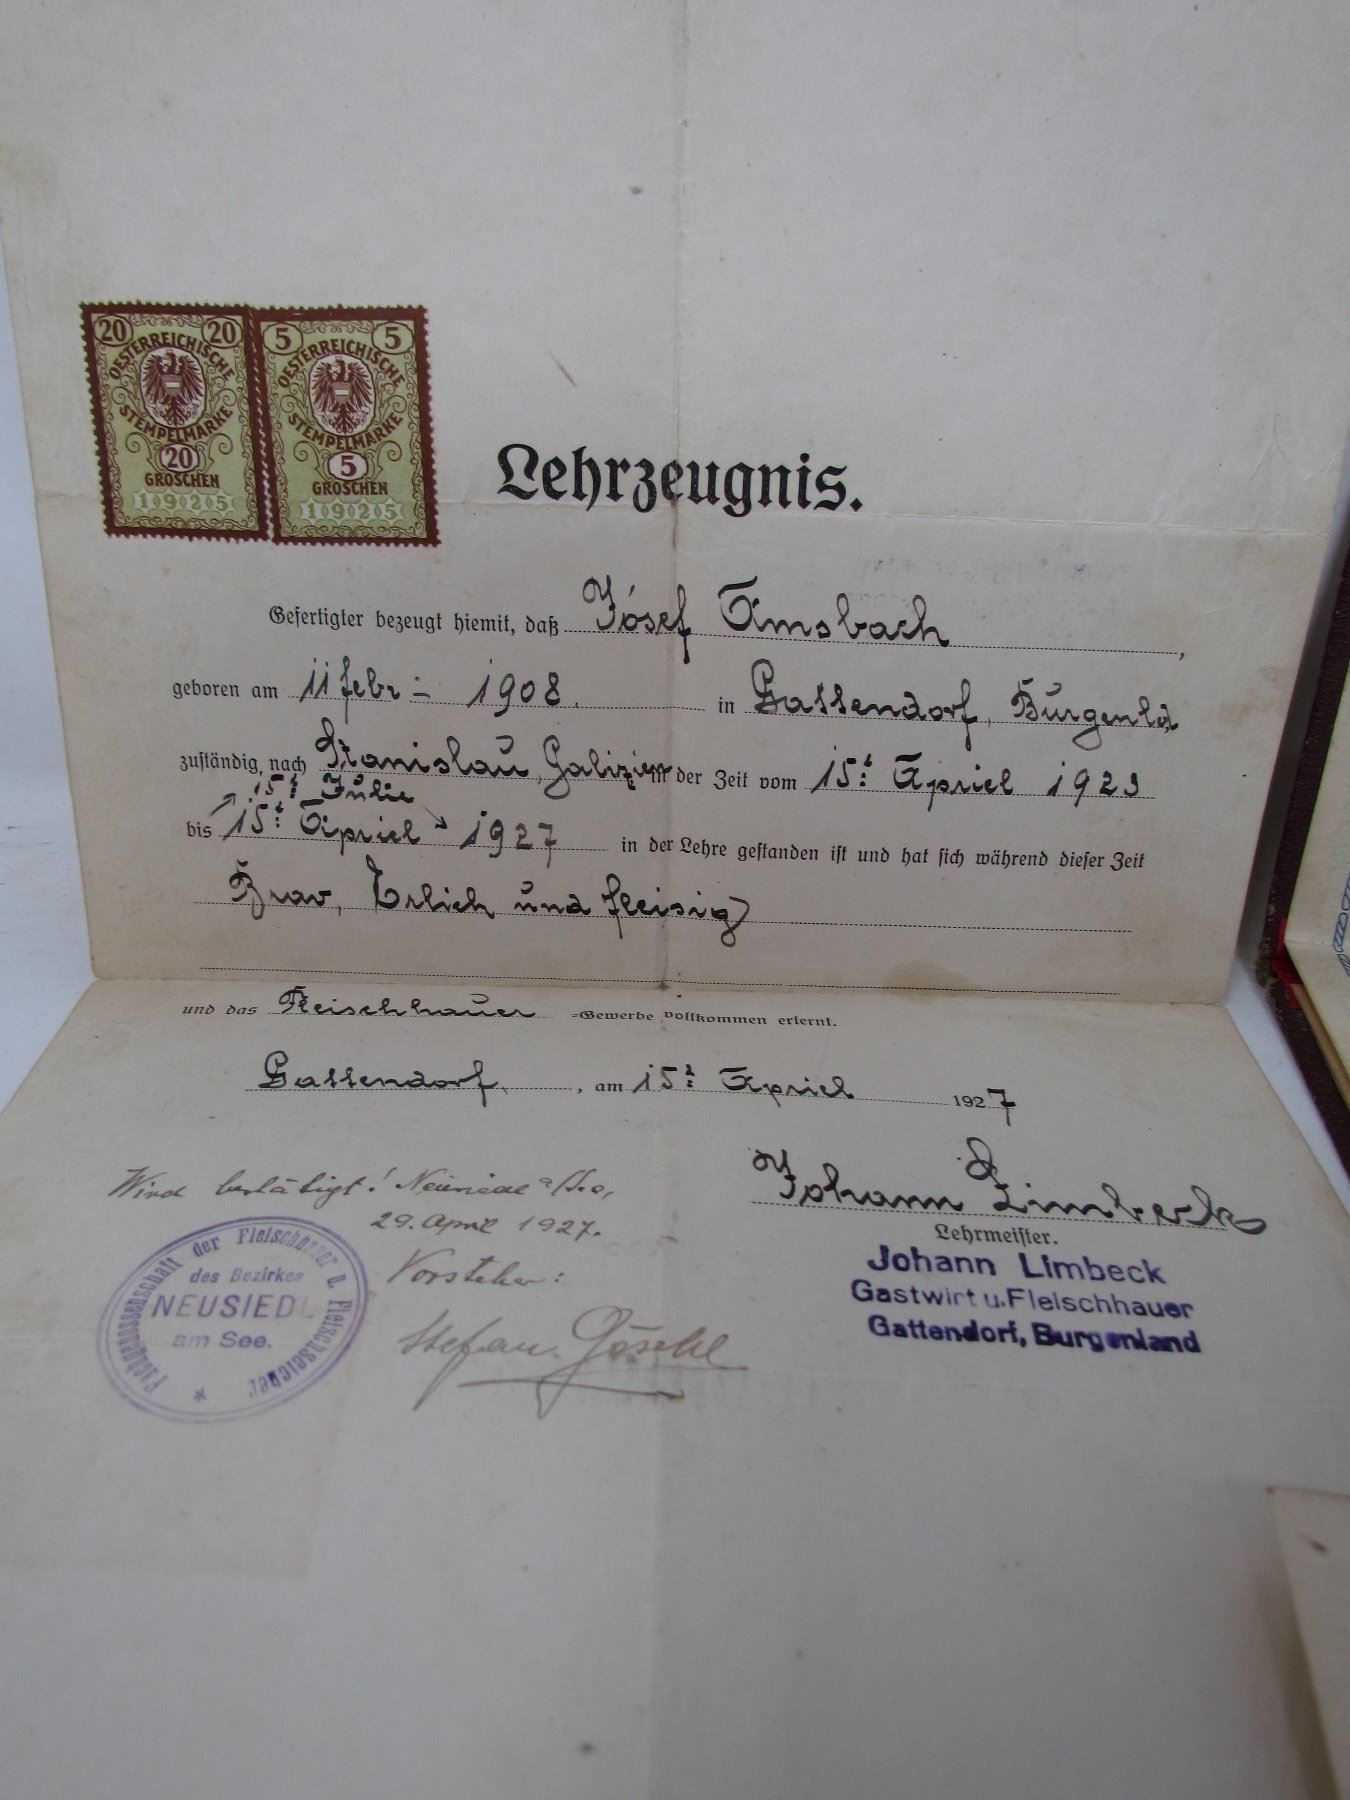 20 20
OESTERREICHISCHE
STEMPELMARKE
20
GROSCHEN
1925
5 5
OESTERREICHISCHE
STEMPELMARKE
5
GROSCHEN
1925
Lehrzeugnis.
Gefertigter bezeugt hiemit, daß Jósef Amsbach,
geboren am 11 febr:- 1908. in Gattendorf, Burgenld,
zuständig nach Stanislau, Galizien in der Zeit vom 15t Apriel 1923
15t Julie
bis 15t Apriel 1927 in der Lehre gestanden ist und hat sich während dieser Zeit
Brav, Erlich und fleisig
und das Fleischhauer -Gewerbe vollkommen erlernt.
Gattendorf, am 15t Apriel 1927
Johann Limbeck
Lehrmeister.
Johann Limbeck
Gastwirt u. Fleischhauer
Gattendorf, Burgenland
Wird bestätigt! Neusiedl a/See,
29. April 1927.
Vorsteher:
Stefan
Fachgenossenschaft der Fleischhauer u. Fleischselcher
des Bezirkes
NEUSIEDL
am See.